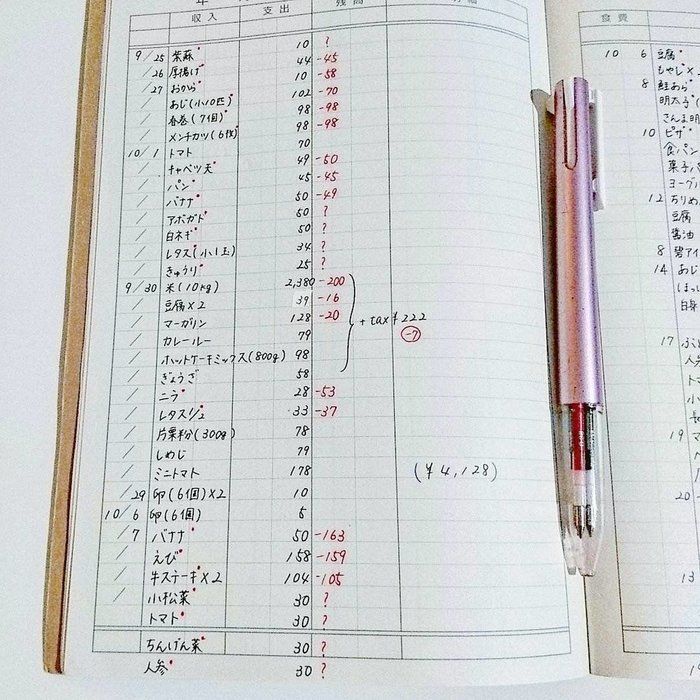 年
収入 支出 残高
9/25 紫蘇 10 ?
/26 厚揚げ 44 -45
/27 おから 10 -58
/ あじ(小10匹) 102 -70
/ 春巻(7個) 98 -98
/ メンチカツ(6枚) 98 -98
10/1 トマト 70
/ キャベツ天 49 -50
/ パン 45 -45
/ バナナ 50 -49
/ アボガド 60 ?
/ 白ネギ 50 ?
/ レタス(小1玉) 34 ?
/ きゅうり 25 ?
9/30 米(10kg) 2,380 -200
/ 豆腐×2 39 -16
/ マーガリン 128 -20
+tax ¥222
/ カレールー 79
-7
/ ホットケーキミックス(800g) 98
/ ぎょうざ 58
/ ニラ 28 -53
/ レタス1/2 33 -37
/ 片栗粉(300g) 78
/ しめじ 79
/ ミニトマト 178
(¥4,128)
/29 卵(6個)×2 10
10/6 卵(6個) 5
/7 バナナ 50 -163
/ えび 158 -159
/ 牛ステーキ×2 104 -105
/ 小松菜 30 ?
トマト 30 ?
ちんげん菜 30 ?
人参 30 ?
食費
10 6 豆腐
もやし×
8 鮭あら
明太子(
さんま明
10 ピザ
食パン
菓子パ
ヨーグル
12 ちりめ
豆腐
醤油
8
14 あじ
17
人参
トマ
小
19 マ
20
13